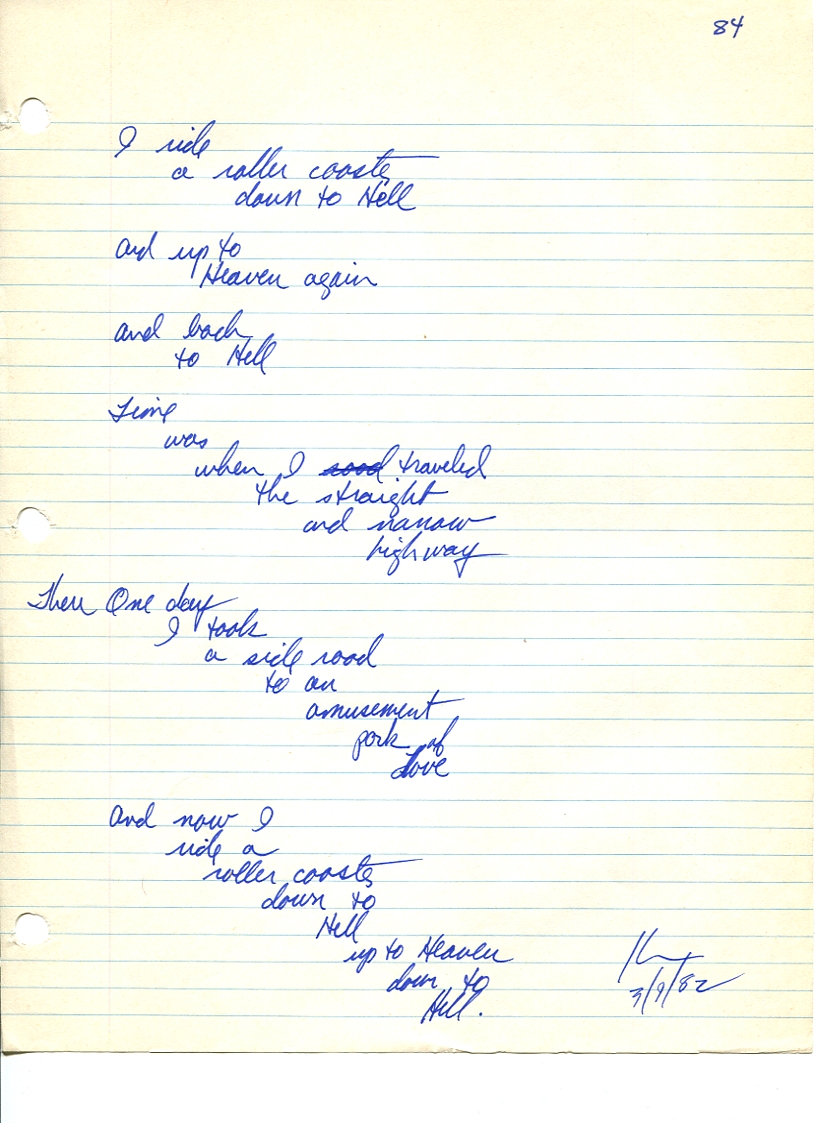 84
I ride
a roller coaster
down to Hell
and up to
Heaven again
and back
to Hell
Time
was
when I traveled
the straight
and narrow
highway
Then One day
I took
a side road
to an
amusement
park of
Love
And now I
ride a
roller coaster
down to
Hell
up to Heaven
down to
Hell.
3/9/82